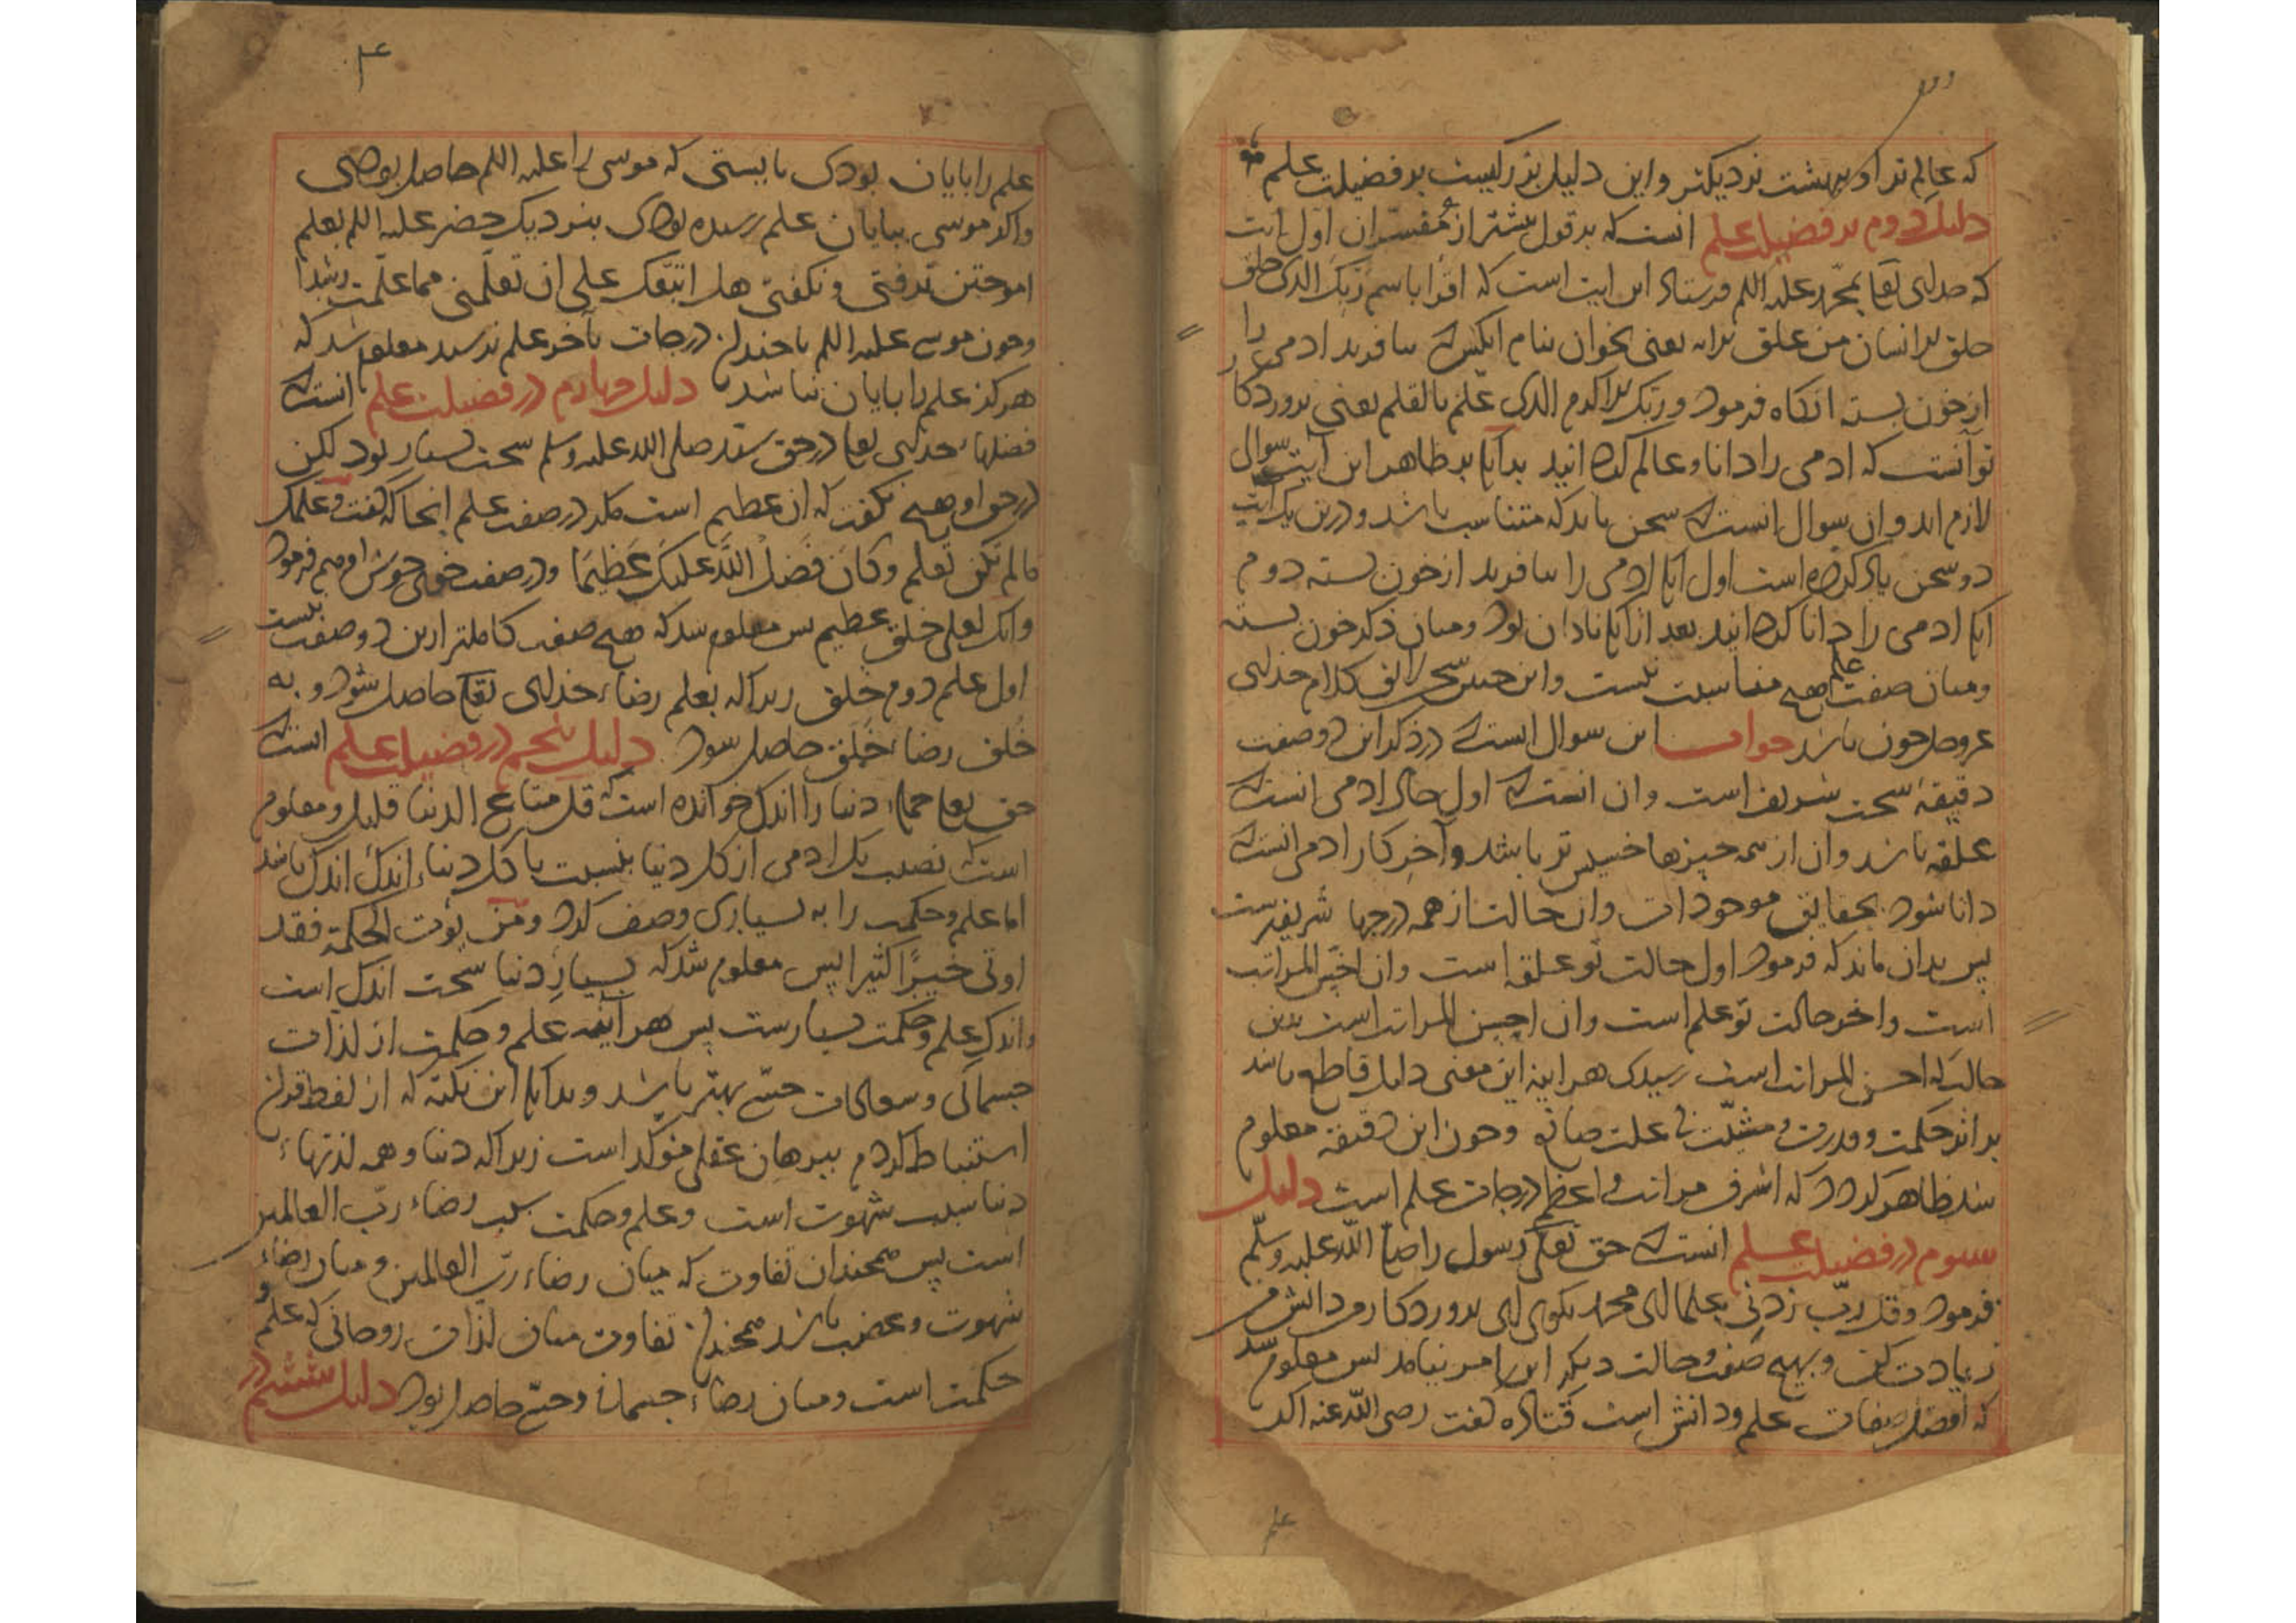 که عالم تر او ببهشت نزدیکتر و این دلیل بزرکیست بر فضیلت علم
دلیل دوم بر فضیلت علم انست که بر قول بیشتر از مفسران اول ایت
که خدای تعا بمحمد علیه اللم فرستاد این ایت است که اقرا باسم ربک الذی خلق
خلق الانسان من علق یعنی بخوان بنام انکس که بیافرید ادمی را
از خون بسته انکاه فرمود و ربک الاکرم الذی علم بالقلم یعنی پروردکار
توانست که ادمی را دانا و عالم کردانید بدانک بر ظاهر این ایت سوال
لازم اید و ان سوال انست که سخن باید که متناسب باشد و درین یک ایت
دو سخن یاد کرده است اول انک ادمی را بیافرید از خون بسته دوم
انک ادمی را دانا کردانید بعد از انک نادان بود و میان ذکر خون بسته
و میان صفت علم هیچ مناسبت نیست و این جنس سخن لایق کلام خدای
عز و جل چون باشد جواب این سوال انست که در ذکر این دو صفت
دقیقهٔ سخت شریف است و ان انست که اول حال ادمی انست که
علقه باشد و ان از همه چیزها خسیس تر باشد و آخر کار ادمی انست که
دانا شود بحقایق موجودات و ان حالت از همه درجها شریفترست
پس بدان ماند که فرمود اول حالت تو علقه است و ان اخس المراتب
است و اخر حالت تو علم است و ان احسن المراتب است بدین
حالت که احسن المراتب است رسیدی هراینه این معنی دلیل قاطع باشد
بر اثر حکمت و قدرت و مشیّت بی علت صانع و چون این دقیقه معلوم
شد ظاهر کردد که اشرف مراتب و اعظم درجات علم است دلیل
سوم در فضیلت علم انست که حق تعالی رسول را صلی اللّه علیه وسلّم
فرمود و قل ربّ زدنی علما ای محمد بکوی ای پروردکار من دانش من
زیادت کن و بهیچ صفت و حالت دیکر این امر نیامد پس معلوم شد
که افضل صفات علم و دانش است قتاده کفت رضی اللّه عنه اکر
۴
علم را پایان بودی بایستی که موسی را علیه اللم حاصل بودی
و اکر موسی بپایان علم رسیده بودی بنزدیک خضر علیه اللم بعلم
اموختن نرفتی و نکفتی هل اتبعک علی ان تعلّمنی مما علّمت رشدا
و چون موسی علیه اللم با چندان درجات بآخر علم نرسید معلوم شد که
هرکز علم را پایان نباشد دلیل چهارم در فضیلت علم انست که
فضلهاء خدای تعا در حق سید صلی الله علیه وسلم سخت بسیار بود لکن
در حق او هیچ نکفت که ان عظیم است مکر در صفت علم انجا که کفت و علمک
مالم تکن تعلم و کان فضل اللّه علیک عظیما و در صفت خوی خوش او هم فرمود
و انک لعلی خلق عظیم پس معلوم شد که هیچ صفت کاملتر ازین دو صفت نیست
اول علم دوم خلق زیراکه بعلم رضاء خدای تعا حاصل شود و به
خلق رضاء خلق حاصل شود دلیل پنجم در فضیلت علم انست که
حق تعا جمله دنیا را اندک خوانده است که قل متاع الدنیا قلیل و معلوم
است که نصیب یک ادمی از کل دنیا بنسبت با کل دنیا اندک اندک باشد
اما علم و حکمت را به بسیاری وصف کرد و من یوت الحکمة فقد
اوتی خیرًا کثیرا پس معلوم شد که بسیار دنیا سخت اندک است
و اندک علم و حکمت بسیارست پس هراینه علم و حکمت از لذات
جسمانی و سعادات حسّی بهتر باشد و بدانک این نکته که از لفظ قران
استنباط کردم ببرهان عقلی مؤکد است زیراکه دنیا و همه لذتهاء
دنیا سبب شهوت است و علم و حکمت سبب رضاء ربّ العالمین
است پس همچندان تفاوت که میان رضاء ربّ العالمین و میان رضاء
شهوت و غضب باشد همچندان تفاوت میان لذات روحانی که علم و
حکمت است و میان رضاء جسمانی و حسّی حاصل بود دلیل ششم در